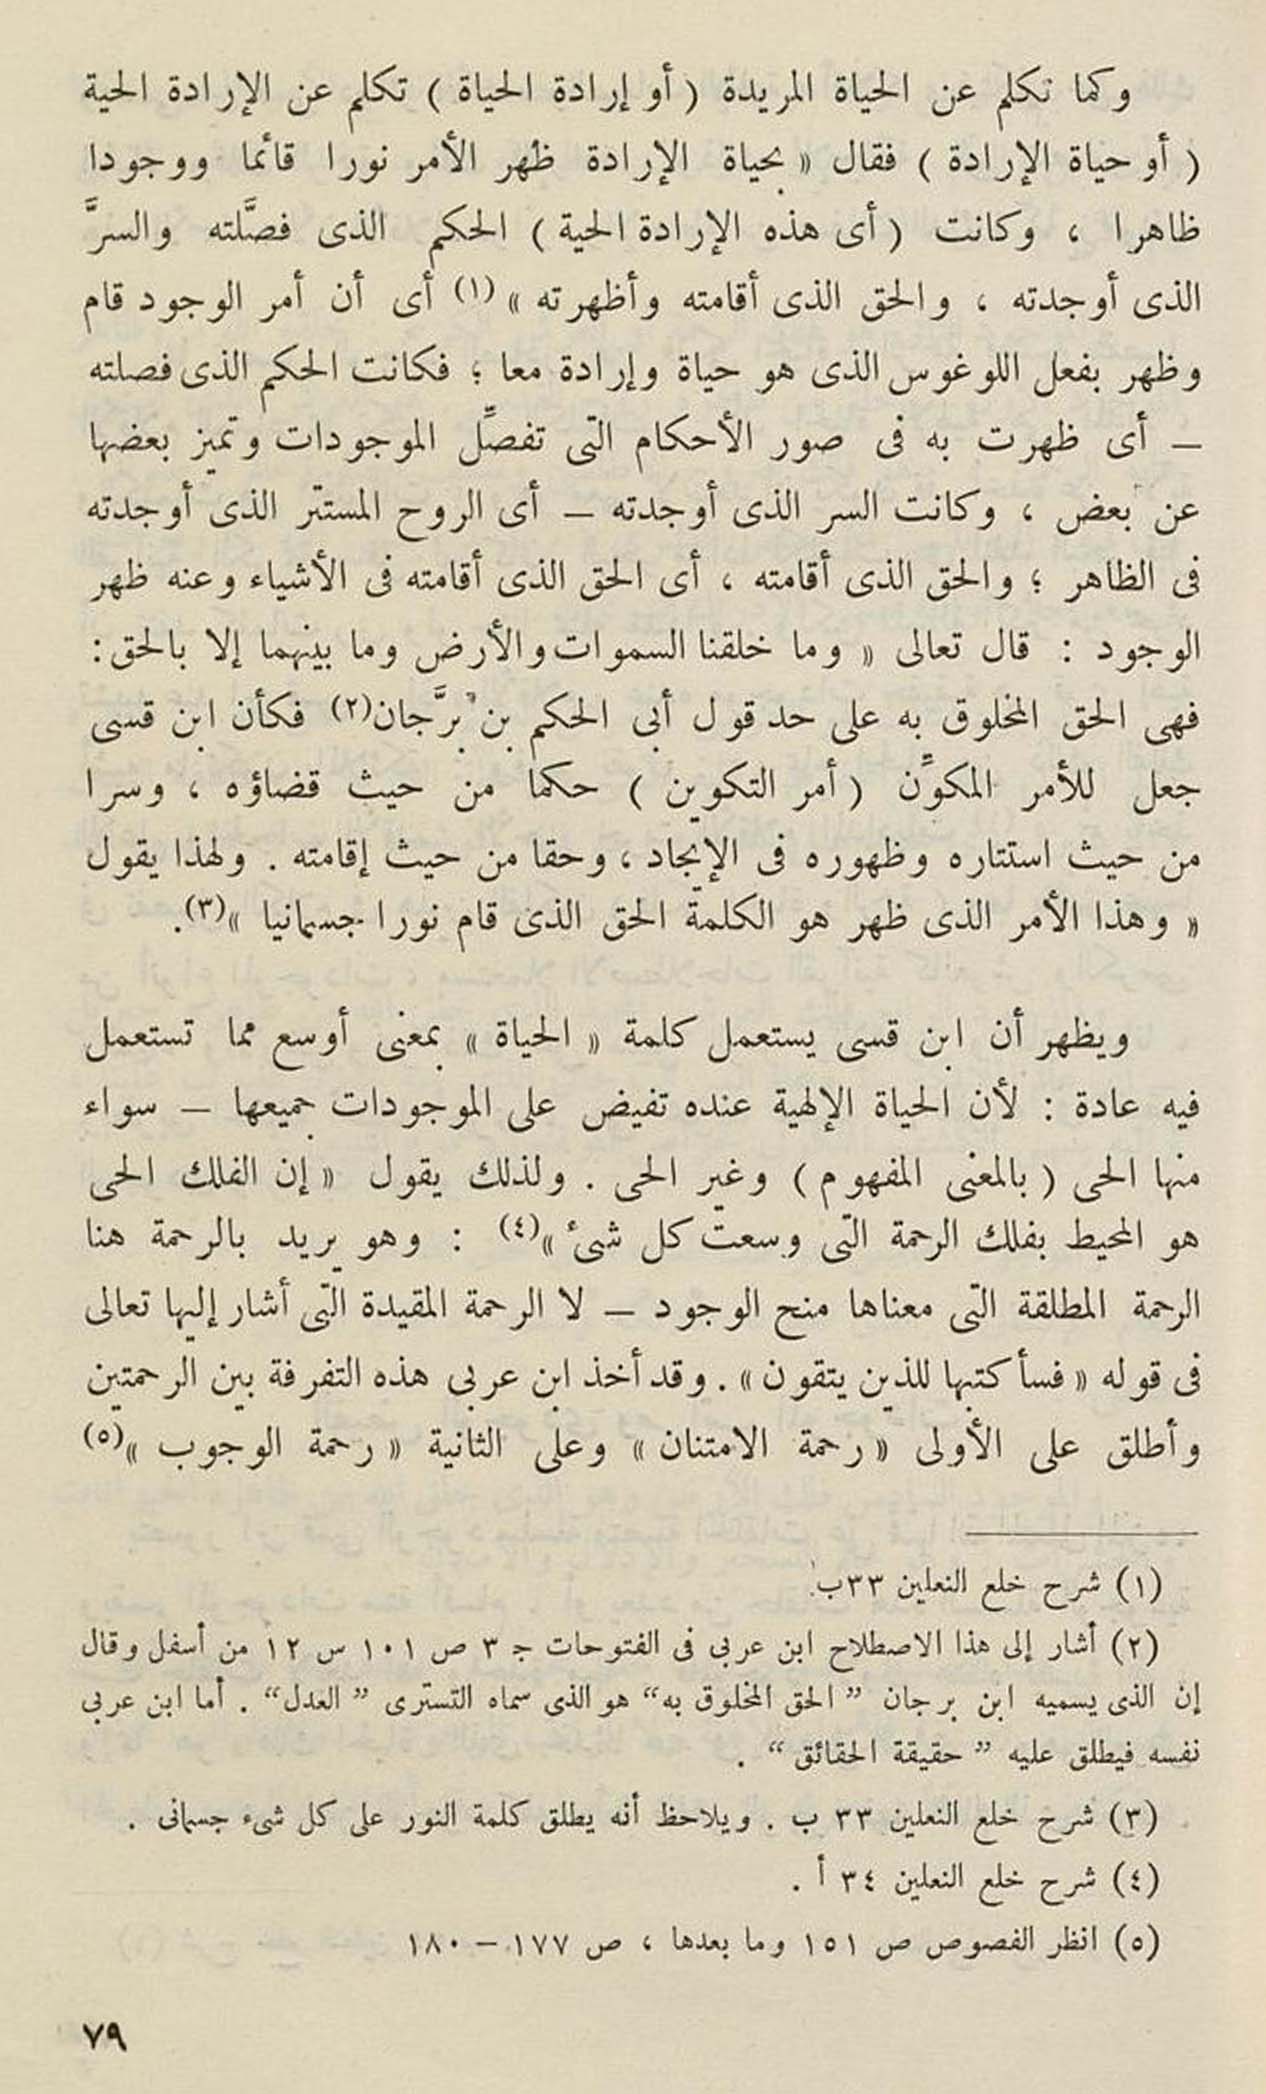 وكما تكلم عن الحياة المريدة ( أو إرادة الحياة ) تكلم عن الإرادة الحية
( أو حياة الإرادة ) فقال « بحياة الإرادة ظهر الأمر نورا قائما ووجودا
ظاهرا ، وكانت ( أى هذه الإرادة الحية ) الحكم الذى فصَّلته والسرَّ
الذى أوجدته ، والحق الذى أقامته وأظهرته » (١) أى أن أمر الوجود قام
وظهر بفعل اللوغوس الذى هو حياة وإرادة معا ؛ فكانت الحكم الذى فصلته
— أى ظهرت به فى صور الأحكام التى تفصِّل الموجودات وتميز بعضها
عن بعض ، وكانت السر الذى أوجدته — أى الروح المستتر الذى أوجدته
فى الظاهر ؛ والحق الذى أقامته ، أى الحق الذى أقامته فى الأشياء وعنه ظهر
الوجود : قال تعالى « وما خلقنا السموات والأرض وما بينهما إلا بالحق :
فهى الحق المخلوق به على حد قول أبى الحكم بن برَّجان(٢) فكأن ابن قسى
جعل للأمر المكوِّن ( أمر التكوين ) حكما من حيث قضاؤه ، وسرا
من حيث استتاره وظهوره فى الإيجاد ، وحقا من حيث إقامته . ولهذا يقول
« وهذا الأمر الذى ظهر هو الكلمة الحق الذى قام نورا جسمانيا »(٣).
ويظهر أن ابن قسى يستعمل كلمة « الحياة » بمعنى أوسع مما تستعمل
فيه عادة : لأن الحياة الإلهية عنده تفيض على الموجودات جميعها — سواء
منها الحى ( بالمعنى المفهوم ) وغير الحى . ولذلك يقول « إن الفلك الحى
هو المحيط بفلك الرحمة التى وسعت كل شىء »(٤) : وهو يريد بالرحمة هنا
الرحمة المطلقة التى معناها منح الوجود — لا الرحمة المقيدة التى أشار إليها تعالى
فى قوله « فسأكتبها للذين يتقون » . وقد أخذ ابن عربى هذه التفرفة بين الرحمتين
وأطلق على الأولى « رحمة الامتنان » وعلى الثانية « رحمة الوجوب »(٥)
(١) شرح خلع النعلين ٣٣ب.
(٢) أشار إلى هذا الاصطلاح ابن عربى فى الفتوحات ج ٣ ص ١٠١ س ١٢ من أسفل وقال
إن الذى يسميه ابن برجان ” الحق المخلوق به“ هو الذى سماه التسترى ” العدل“ . أما ابن عربى
نفسه فيطلق عليه ” حقيقة الحقائق “ .
(٣) شرح خلع النعلين ٣٣ ب . ويلاحظ أنه يطلق كلمة النور على كل شىء جسمانى .
(٤) شرح خلع النعلين ٣٤ أ .
(٥) انظر الفصوص ص ١٥١ وما بعدها ، ص ١٧٧ — ١٨٠
٧٩